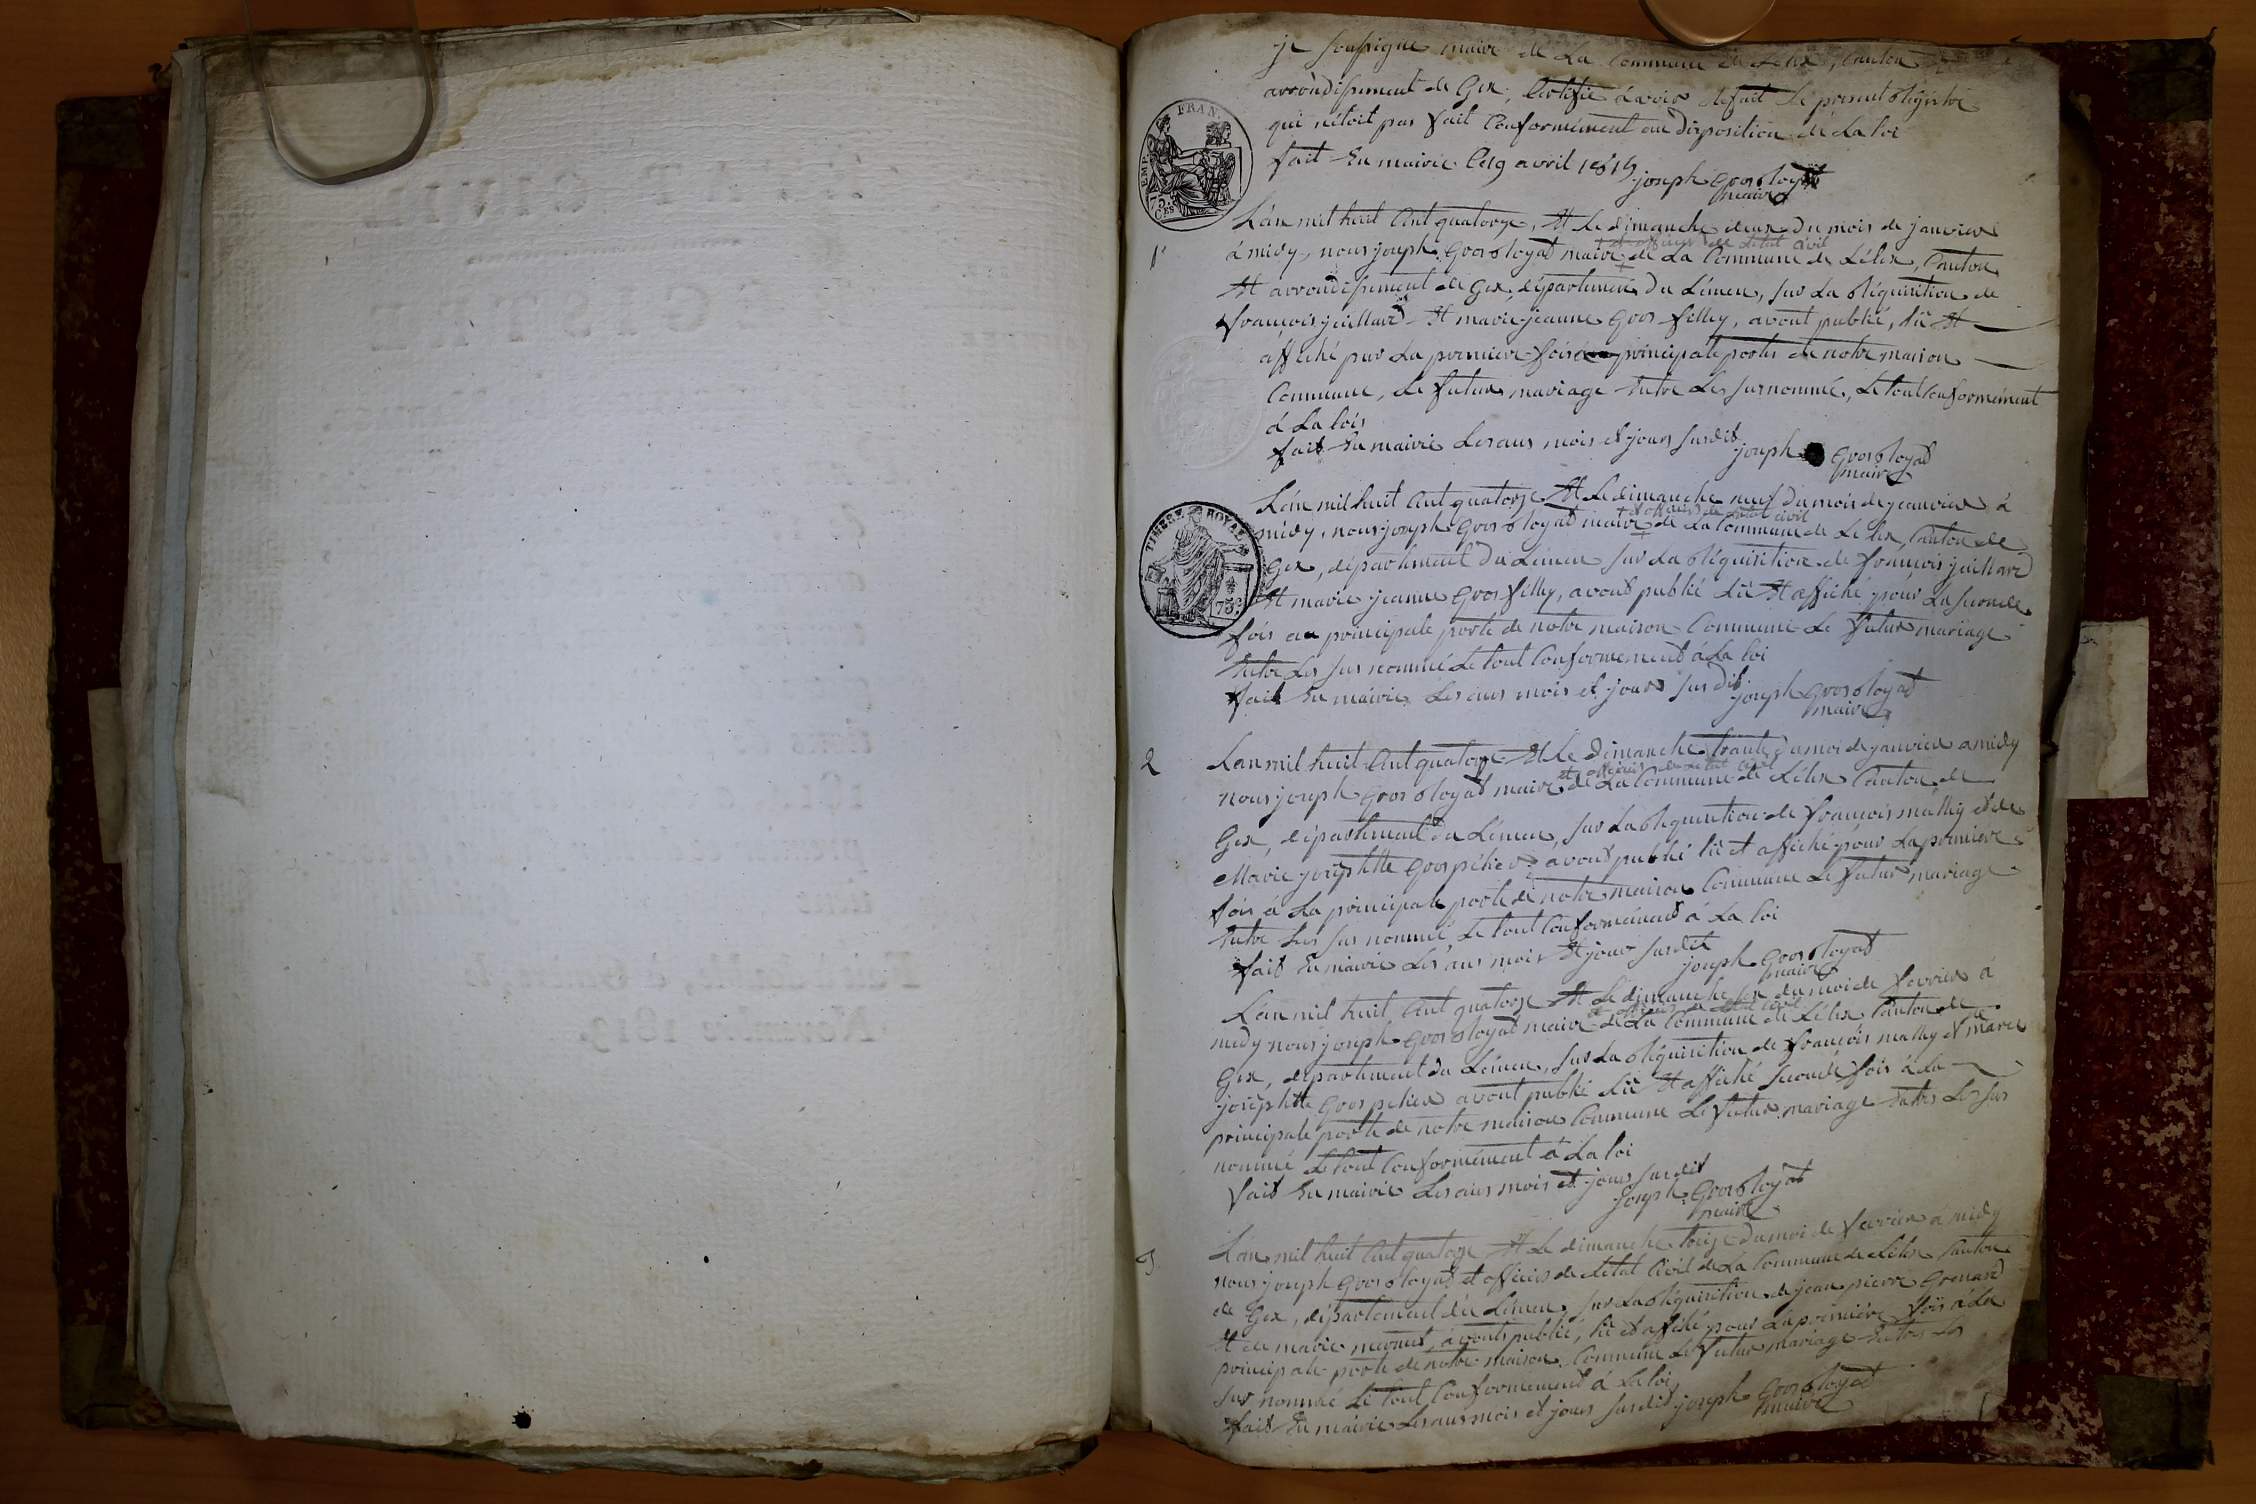 je soussigné maire de La Commune de Lélex, Canton
arrondissement de Gex, Certifie avoir refait Le present Régistre
qui nétoit pas fait Conformément au disposition de La loi
fait En mairie Ce 19 avril 1815
joseph Grosroyat
maire
EMP. FRAN.
75.
CES
1r
L'an mil huit Cent quatorze, Et Le dimanche deux du mois de janvier
et officier de Létat Civil
à midy, nous joseph Grosroyat maire de La Commune de Lélex, Canton
Et arrondissement de Gex, département du Léman, sur La Réquisition de
françois juillard Et marie jeanne Gros filley, avont publié, lû Et
affiché pur La premiere fois principale portes de notre maison
Commune, Le futur mariage Entre Les surnommé, Le tout Conformément
à La loi
fait En mairie Les ans mois et jours susdit
joseph Grosroyat
maire
TIMBRE ROYAL
75c
L'an mil huit Cent quatorze Et Le dimanche neuf du mois de jeanvier à
et officier de Létat civil
midy, nous joseph Grosroyat maire de La Commune de Lélex, Canton de
Gex, département du Léman sur La Réquisition de françois juillard
Et marie jeanne Gros filley, avont publié lû Et affiché pour La seconde
fois au principale porte de notre maison Commune Le futur mariage
Entre Les sus nommé Le tout Conformement à La loi
fait En mairie Les ans mois et jours sus dit
joseph Grosroyat
maire
2
L'an mil huit Cent quatorze Et Le dimanche trante du moi de janvier a midy
et officier de Létat Civil
nous joseph Grosroyat maire de La Commune de Lélex Canton de
Gex, département du Léman, sur La Réquisition de françois mathy et de
Marie josephtte Grospelier, avont publié lû et affiché pour La premiere
fois à La principale porte de notre maison Commune Le futur mariage
Entre Les sus nommé Le tout Conformément à La loi
fait En mairie Les ans mois Et jour susdit
joseph Grosroyat
maire
L'an mil huit Cent quatorze Et Le dimanche six du moi de fevrier à
et officier de Létat Civil
midy nous joseph Grosroyat maire de La Commune de Lélex Canton de
Gex, département du Léman, sur La Réquisition de françois mathy et marie
josephtte Grospelier avont publié Lû Et affiché seconde fois à La
principale porte de notre maison Commune Le futur mariage Entre Les sus
nommé Le tout Conformément à La loi
fait En mairie Les ans mois et jours susdit
joseph Grosroyat
maire
3
L'an mil huit Cent quatorze Et Le dimanche treize du moi de fevrier a midy
nous joseph Grosroyat et officier de Létat Civil de La Commune de Lélex Canton
de Gex, département du Léman, sur La Réquisition de jean pierre Grenard
Et de marie avont publié, lû et affiché pour La premiere fois à La
principale porte de notre maison Commune Le futur mariage Entre Les
sus nommé Le tout Conformement à La loi
fait En mairie Les ans mois et jours susdit joseph Grosroyat
maire